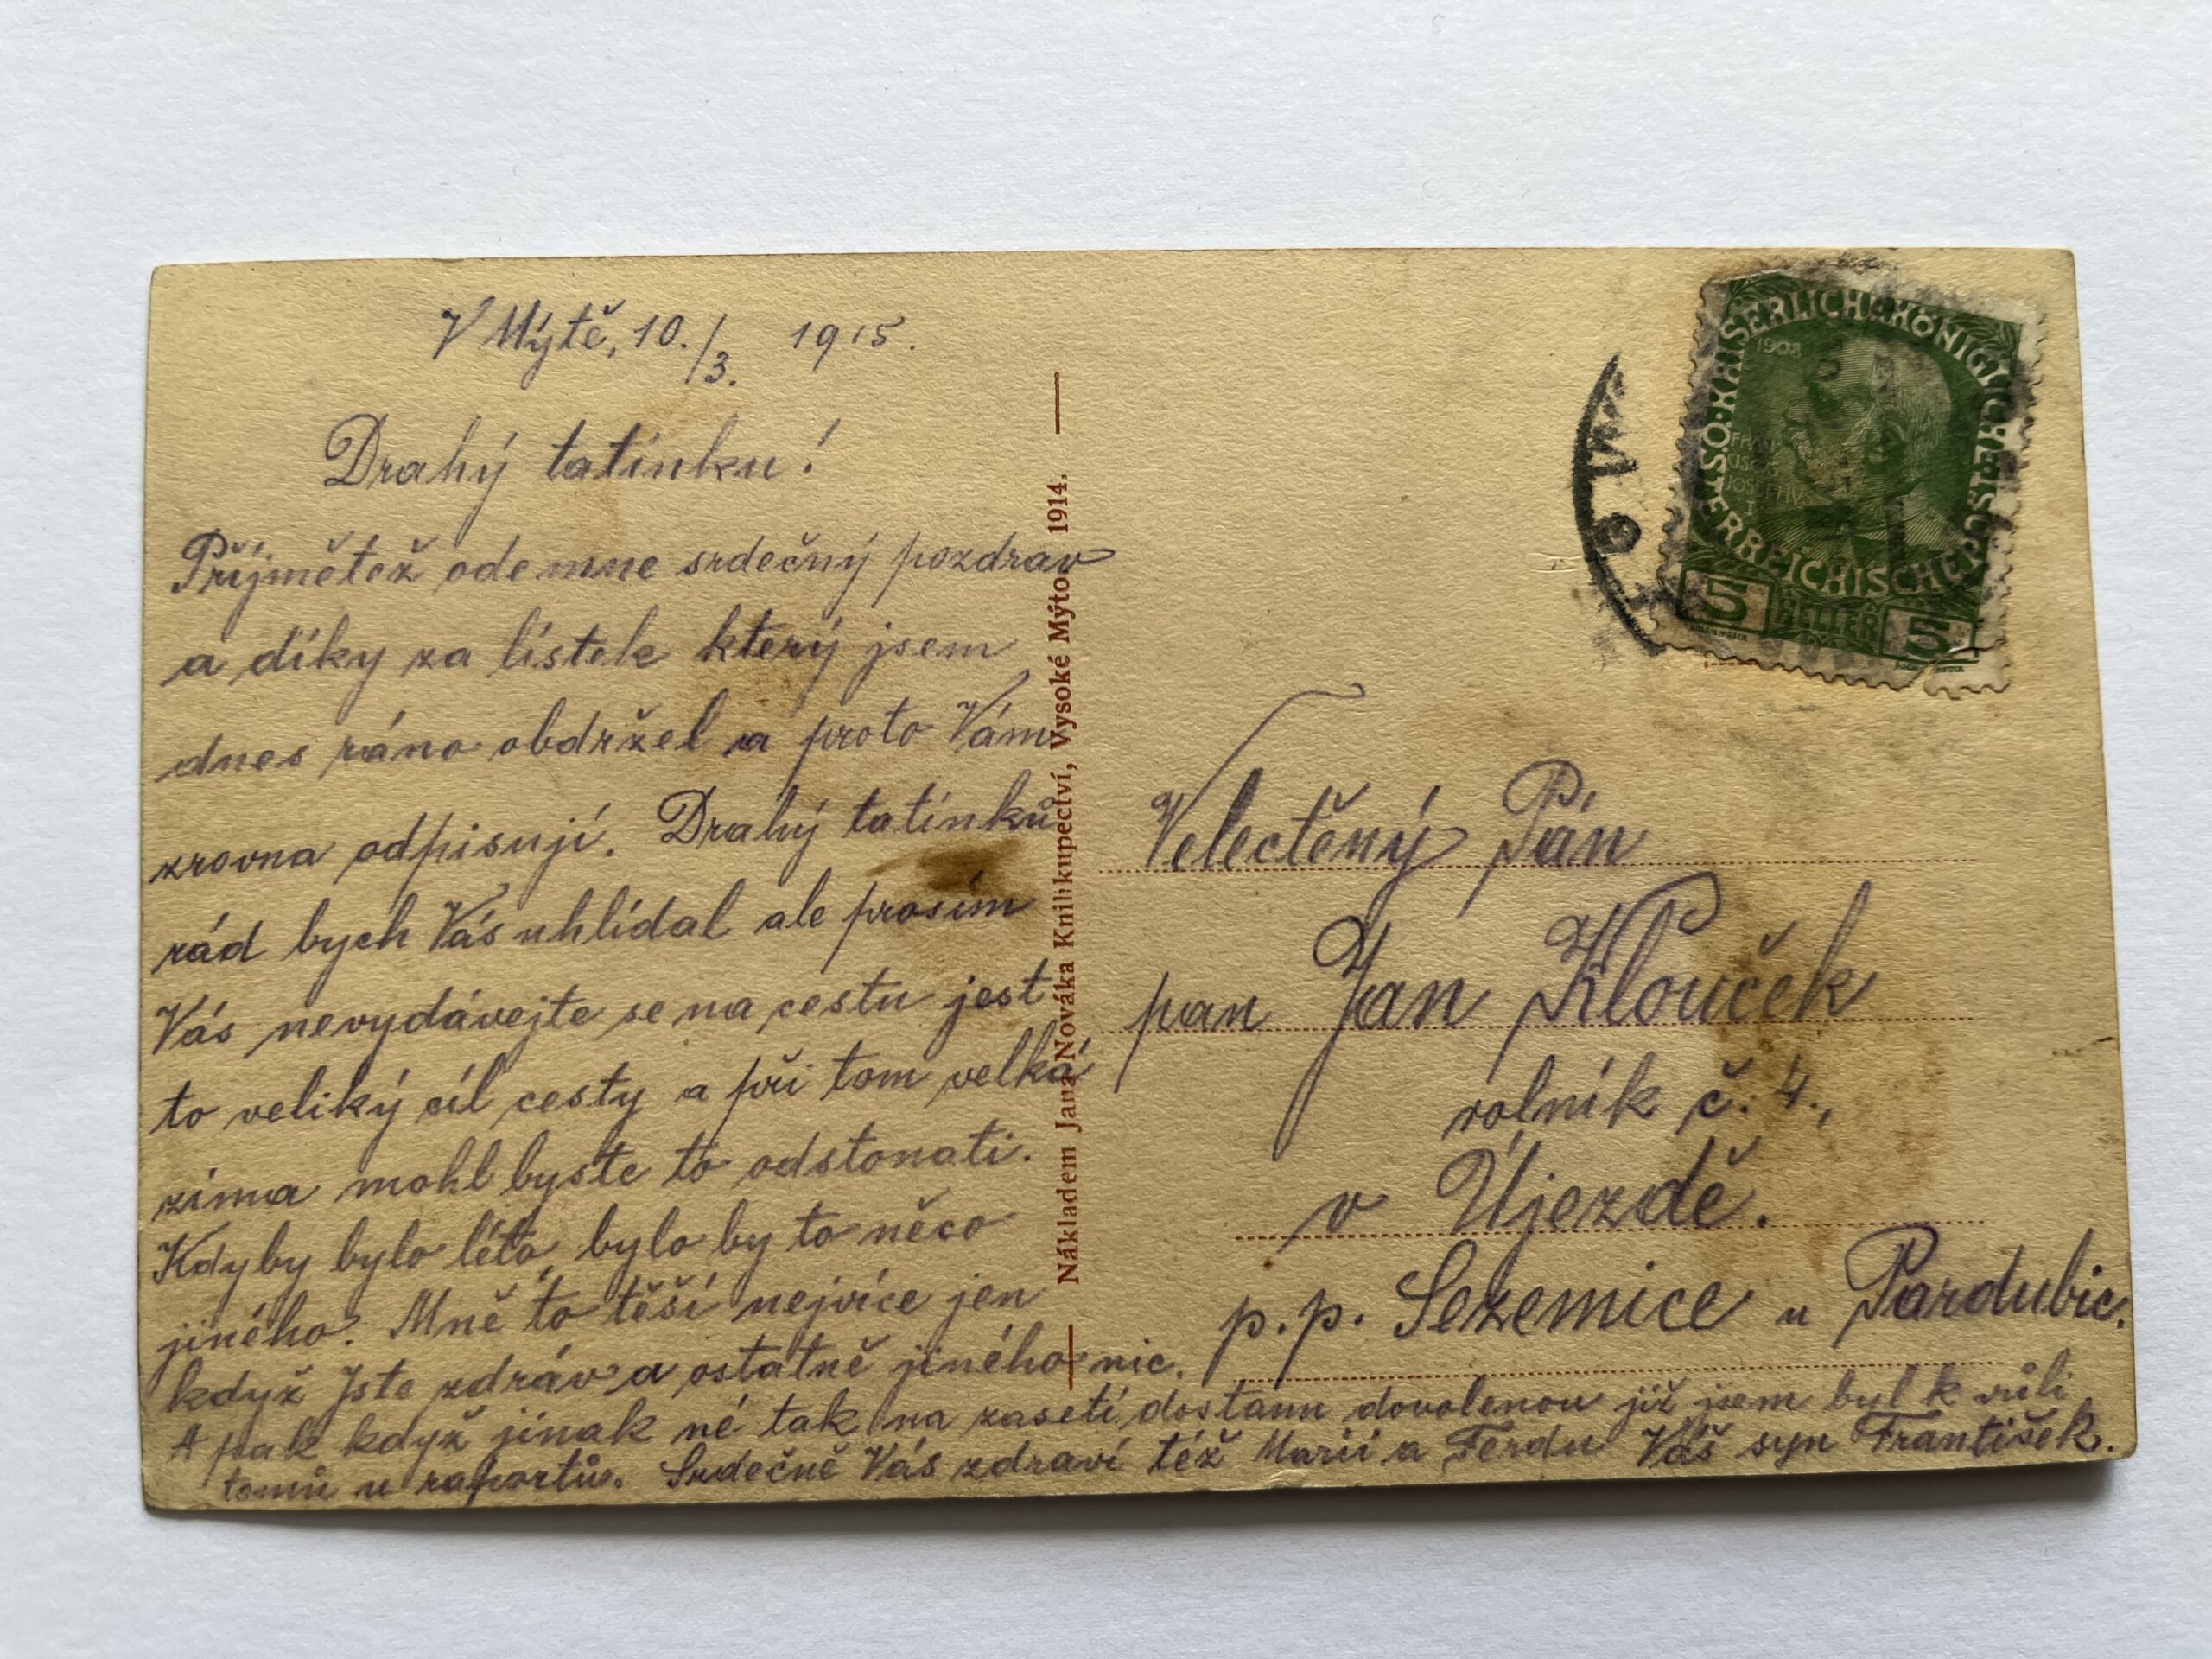 V Mýtě, 10./3. 1915.
Drahý tatínku!
Příjmětež ode mne srdečný pozdrav
a díky za lístek který jsem
dnes ráno obdržel a proto Vám
zrovna odpisují. Drahý tatínku
rád bych Vás uhlídal ale prosím
Vás nevydávejte se na cestu jest
to veliký cíl cesty a při tom velká
zima mohl byste to odstonati.
Kdyby bylo léto, bylo by to něco
jiného. Mně to těší nejvíce jen
když Jste zdráv a ostatně jiného nic.
A pak když jinak né tak na zasetí dostanu dovolenou již jsem byl k vůli
tomů u raportů. Srdečně Vás zdraví též Marii a Ferdu Váš syn František.
Nákladem Jana Nováka Knihkupectví, Vysoké Mýto 1914.
KAISERLICHE KÖNIGLICHE ÖSTERREICHISCHE
1908
5 HELLER 5
MÝTO
Velectěný Pán
pan Jan Klouček
rolník č. 4.,
v Újezdě.
p. p. Sezemice u Pardubic.